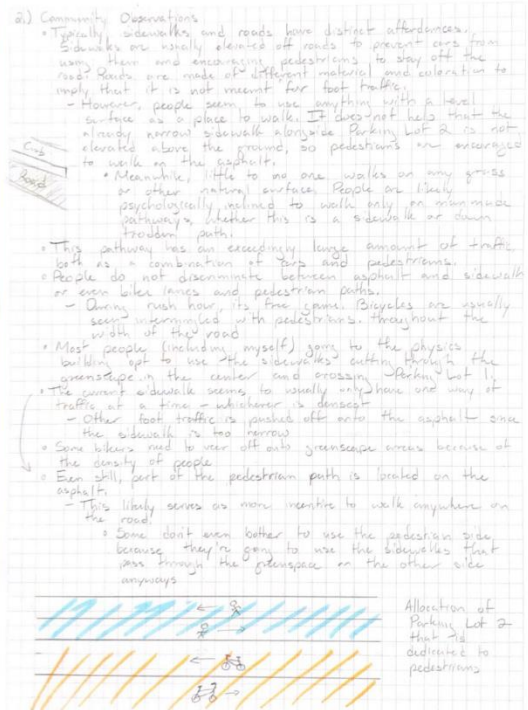 2.) Community Observations
• Typically, sidewalks and roads have distinct affordances.
Sidewalks are usually elevated off roads to prevent cars from
using them and encouraging pedestrians to stay off the
road. Roads are made of different material and coloration to
imply that it is not meant for foot traffic.
- However, people seem to use anything with a level
surface as a place to walk. It does not help that the
already narrow sidewalk alongside Parking Lot 2 is not
elevated above the ground, so pedestrians are encouraged
to walk on the asphalt.
Road
• Meanwhile, little to no one walks on any grass
or other natural surface. People are likely
psychologically inclined to walk only on man made
pathways, whether this is a sidewalk or down
trodden path.
• This pathway has an exceedingly large amount of traffic
both as a combination of cars and pedestrians.
• People do not discriminate between asphalt and sidewalk
or even bike lanes and pedestrian paths.
- During rush hour, its free game. Bicycles are usually
seen intermingled with pedestrians throughout the
width of the road
• Most people (including myself) going to the physics
building opt to use the sidewalks cutting through the
greenscape in the center and crossing Parking Lot 1.
• The current sidewalk seems to usually only have one way of
traffic at a time - whichever is densest
- Other foot traffic is pushed off onto the asphalt since
the sidewalk is too narrow
• Some bikers need to veer off onto greenscape areas because of
the density of people
• Even still, part of the pedestrian path is located on the
asphalt.
- This likely serves as more incentive to walk anywhere on
the road.
• Some don't even bother to use the pedestrian side
because they're going to use the sidewalks that
pass through the greenspace on the other side
anyways
Allocation of
Parking Lot 2
that is
dedicated to
pedestrians